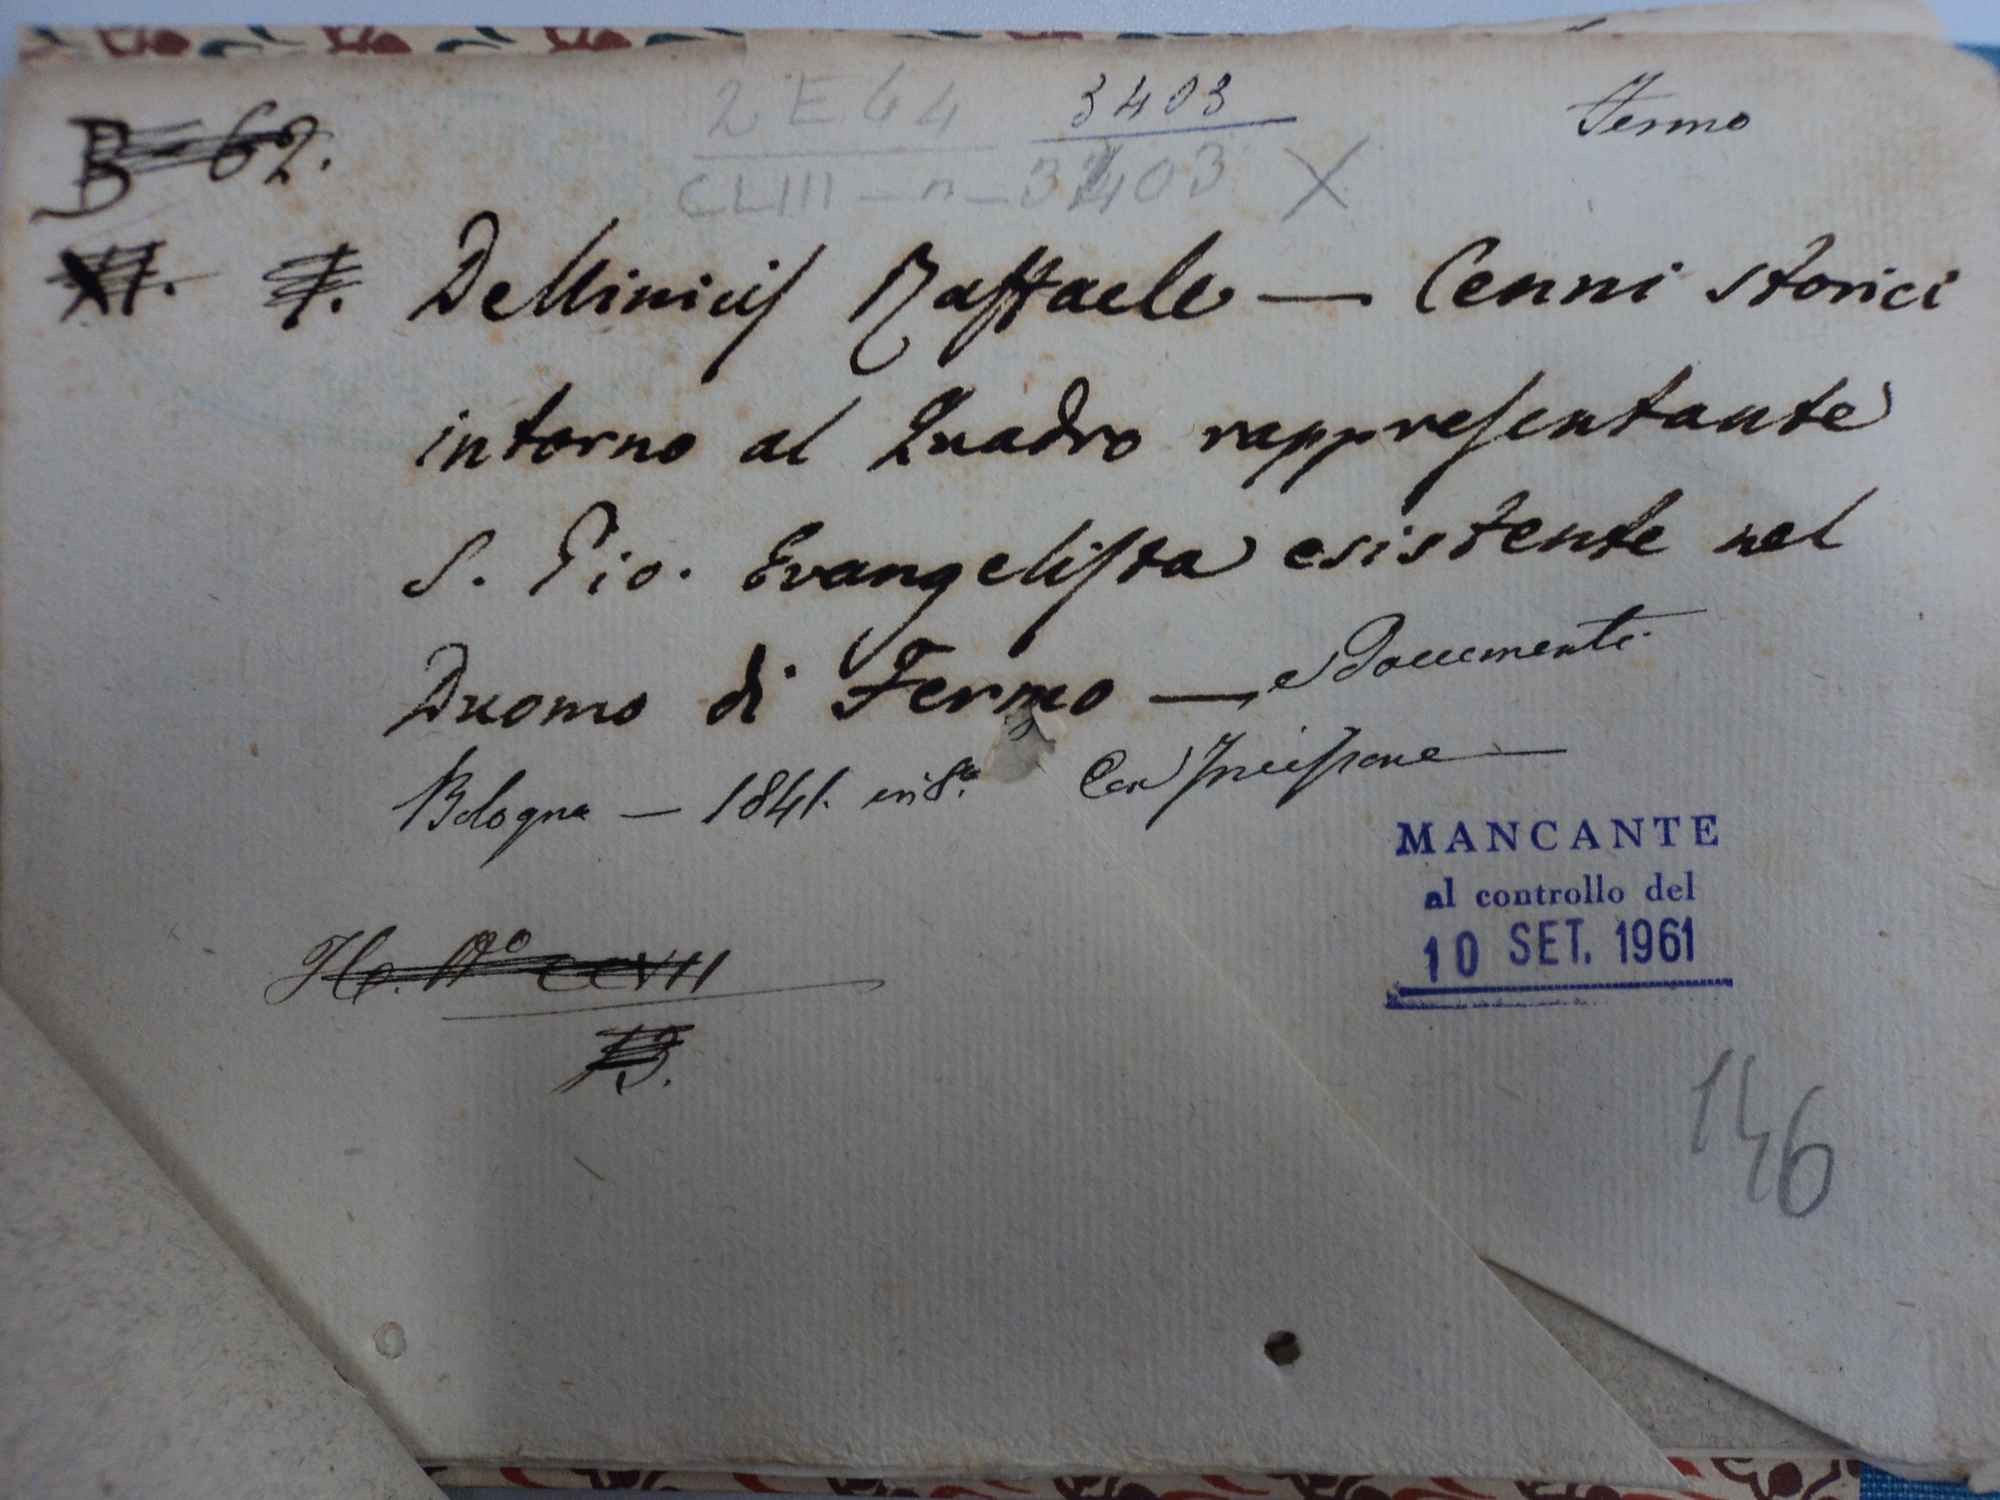 B-62.
2 E 64 3403
CLIII - n - 3403 X
Fermo
XI. 7. DeMinicis Raffaele — Cenni storici
intorno al Quadro rappresentante
S. Gio. Evangelista esistente nel
Duomo di Fermo — e Documenti.
Bologna — 1841. in 8.º Con Incisione —
MANCANTE
al controllo del
10 SET. 1961
Nº CCVII
B.
146